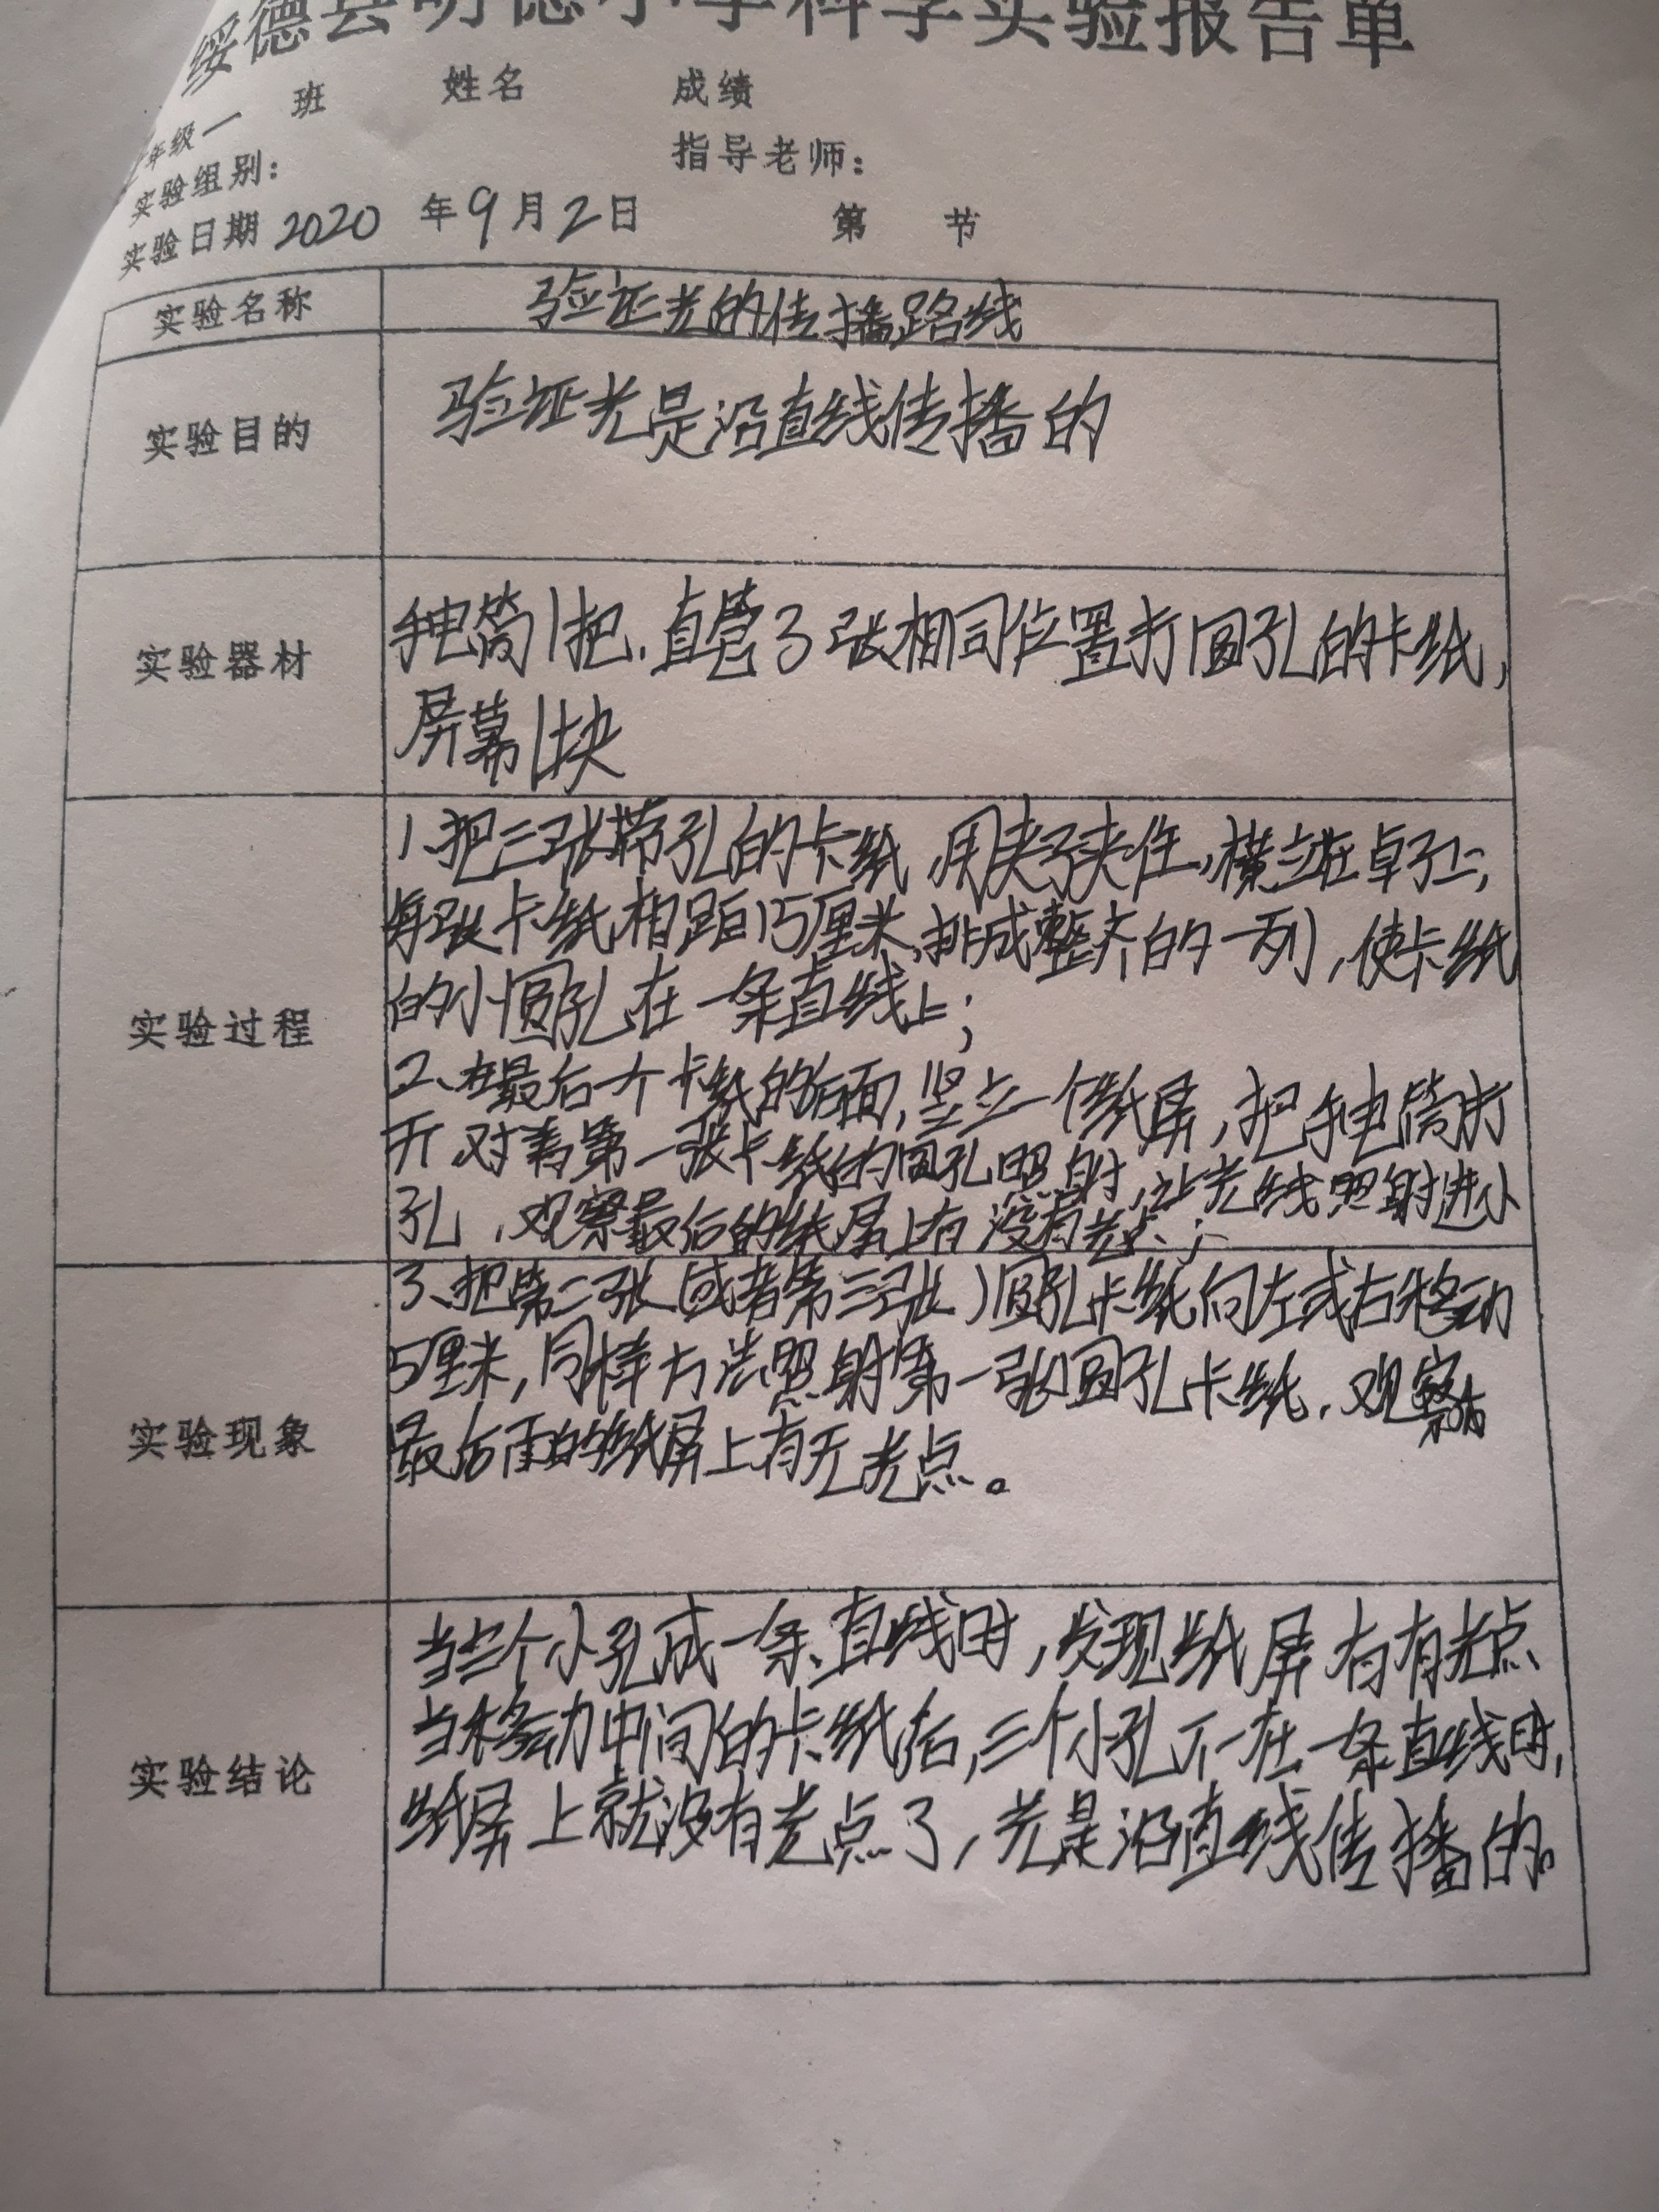 绥德县明德小学科学实验报告单
年级一 班 姓名 成绩
实验组别: 指导老师:
实验日期 2020 年9月2日 第 节
实验名称 验证光的传播路线
实验目的 验证光是沿直线传播的
实验器材
手电筒1把.直管3张相同位置打圆孔的卡纸,
屏幕1块
实验过程
1、把三张带孔的卡纸,用夹子夹住,横立在卓子上,
每张卡纸相距15厘米,排成整齐的一列,使卡纸
的小圆孔在一条直线上;
2、在最后一个卡纸的后面,竖立一个纸屏,把手电筒打
开对着第一张卡纸的圆孔照射,让光线照射进小
孔,观察最后的纸屏上有没有光点;
实验现象
3、把第二张(或者第三张)圆孔卡纸向左或右移动
5厘米,同样方法照射第一张圆孔卡纸.观察
最后面的纸屏上有无光点。
实验结论
当三个小孔成一条直线时,发现纸屏有有光点
当移动中间的卡纸后,三个小孔不在一条直线时,
纸屏上就没有光点了,光是沿直线传播的。